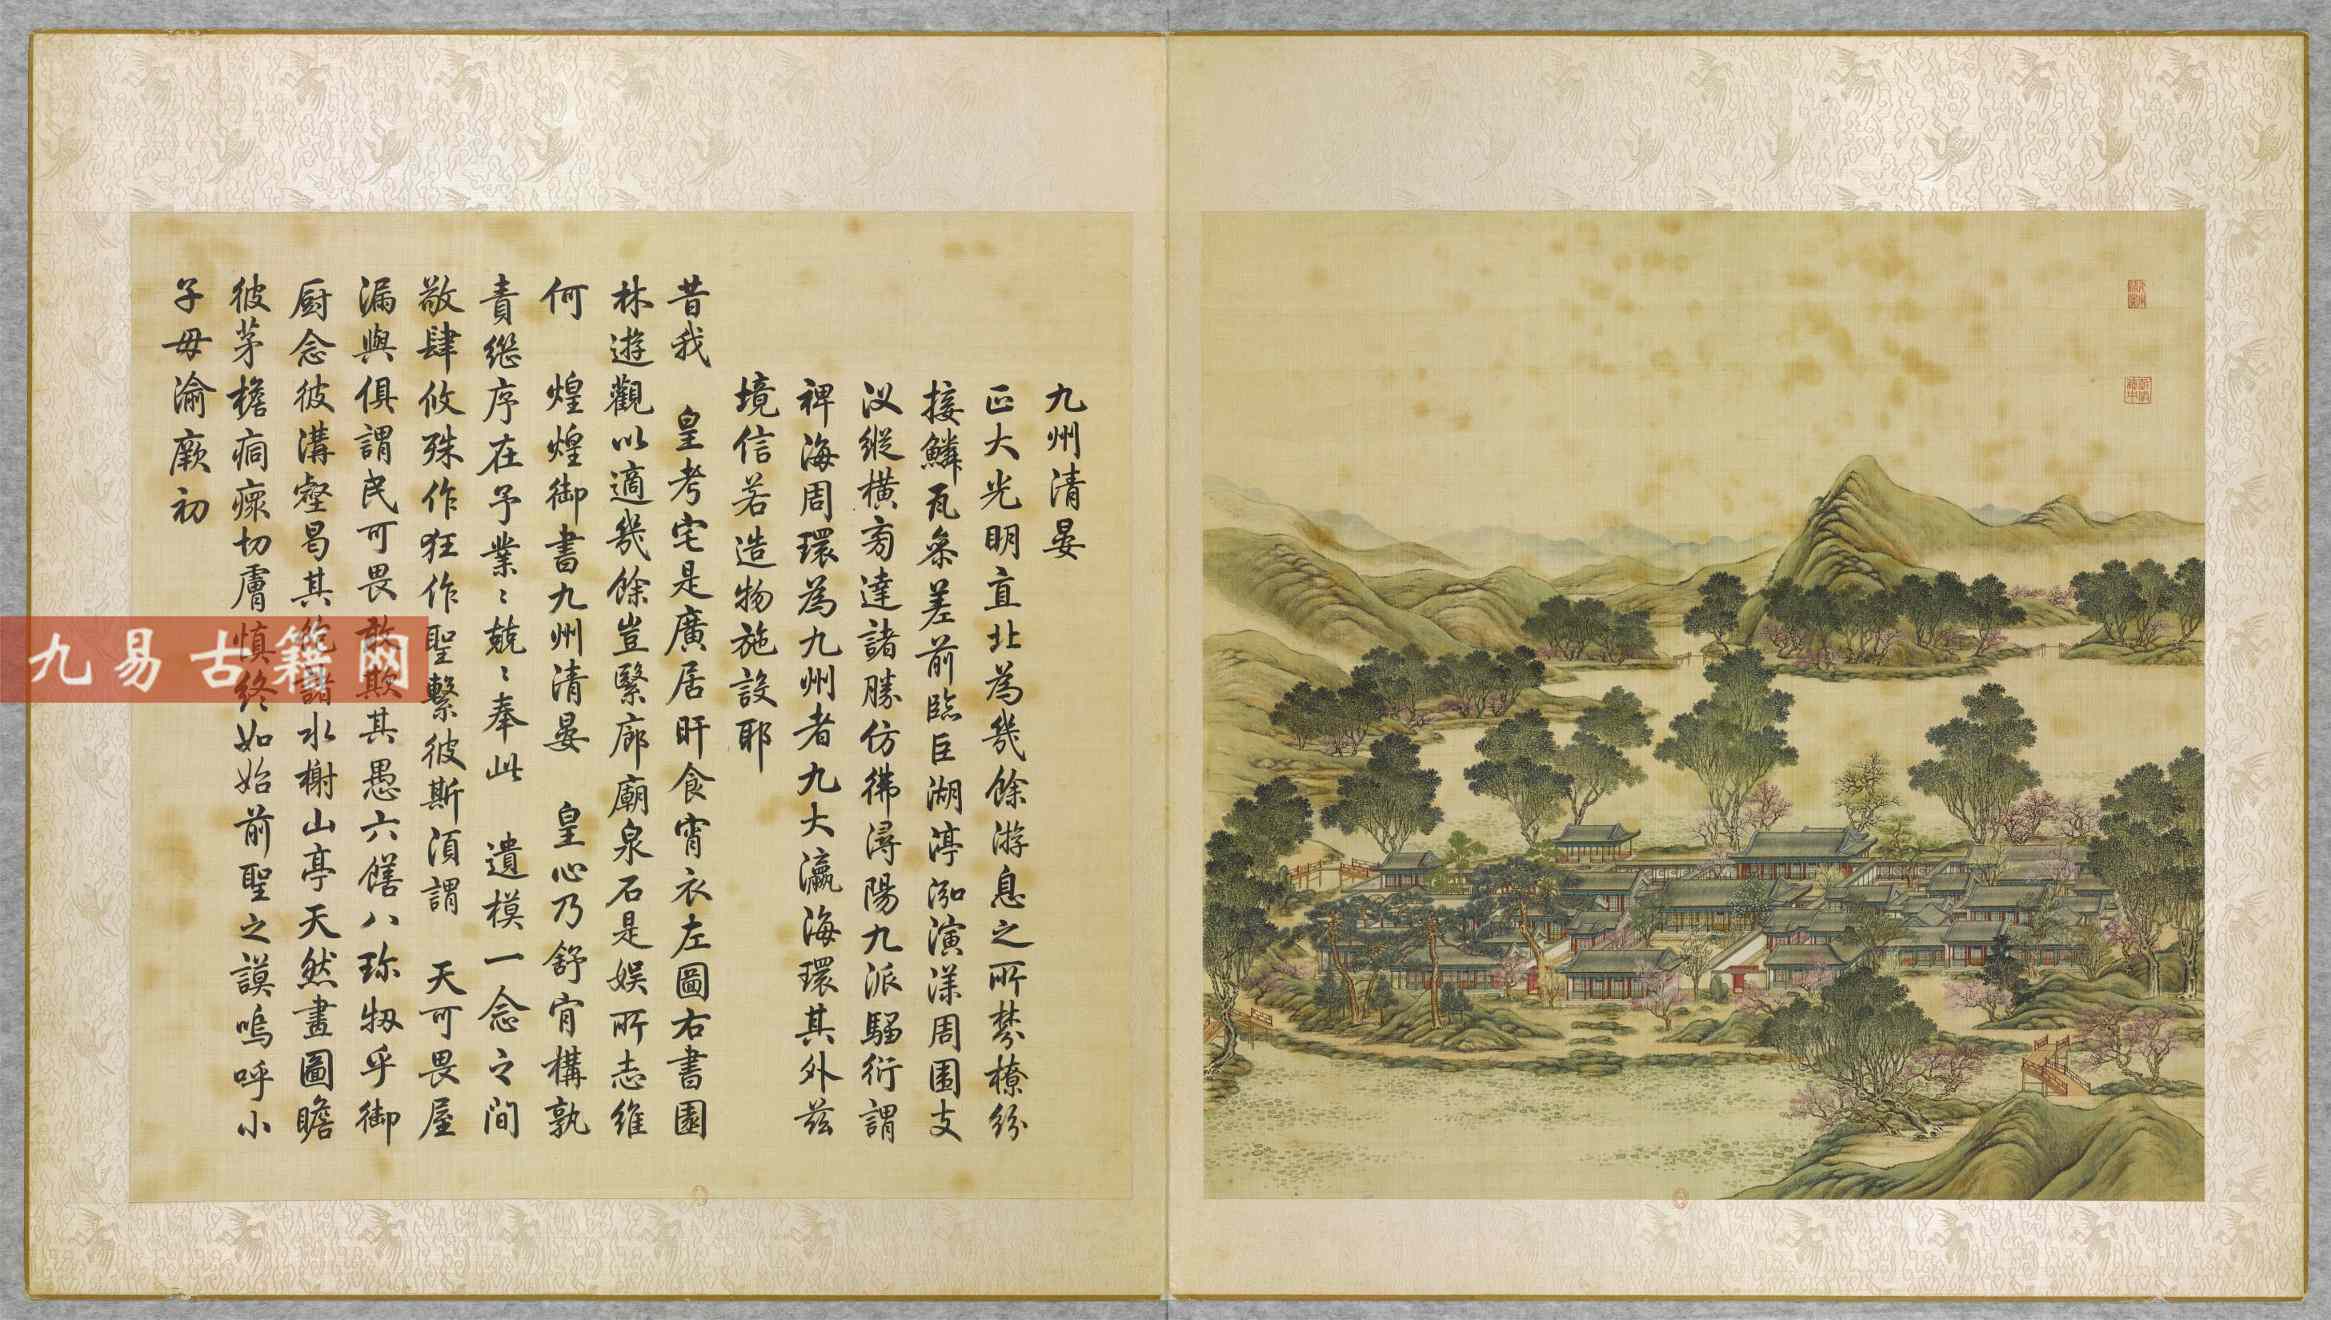 九州清晏
正大光明直北為幾餘游息之所棼橑紛
接鱗瓦參差前臨巨湖渟泓演漾周圍支
汊縱橫旁達諸勝仿彿潯陽九派騶衍謂
裨海周環為九州者九大瀛海環其外茲
境信若造物施設耶
昔我 皇考宅是廣居旰食宵衣左圖右書園
林遊觀以適幾餘豈繄廊廟泉石是娛所志維
何 煌煌御書九州清晏 皇心乃舒肯構孰
責繼序在予業〻兢〻奉此 遺模一念之間
敬肆攸殊作狂作聖繫彼斯須謂 天可畏屋
漏與俱謂民可畏敢欺其愚六膳八珍牣乎御
厨念彼溝壑曷其飽諸水榭山亭天然畫圖瞻
彼茅檐痌瘝切膚慎終如始前聖之謨嗚呼小
子毋渝厥初
九易古籍网